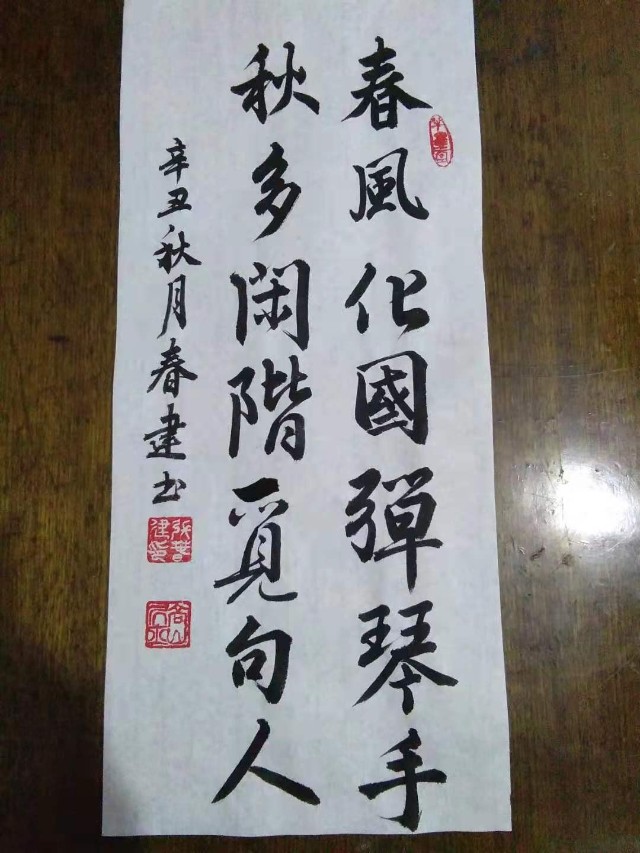 春風化國彈琴手
秋多閑階覓句人
辛丑秋月春建书